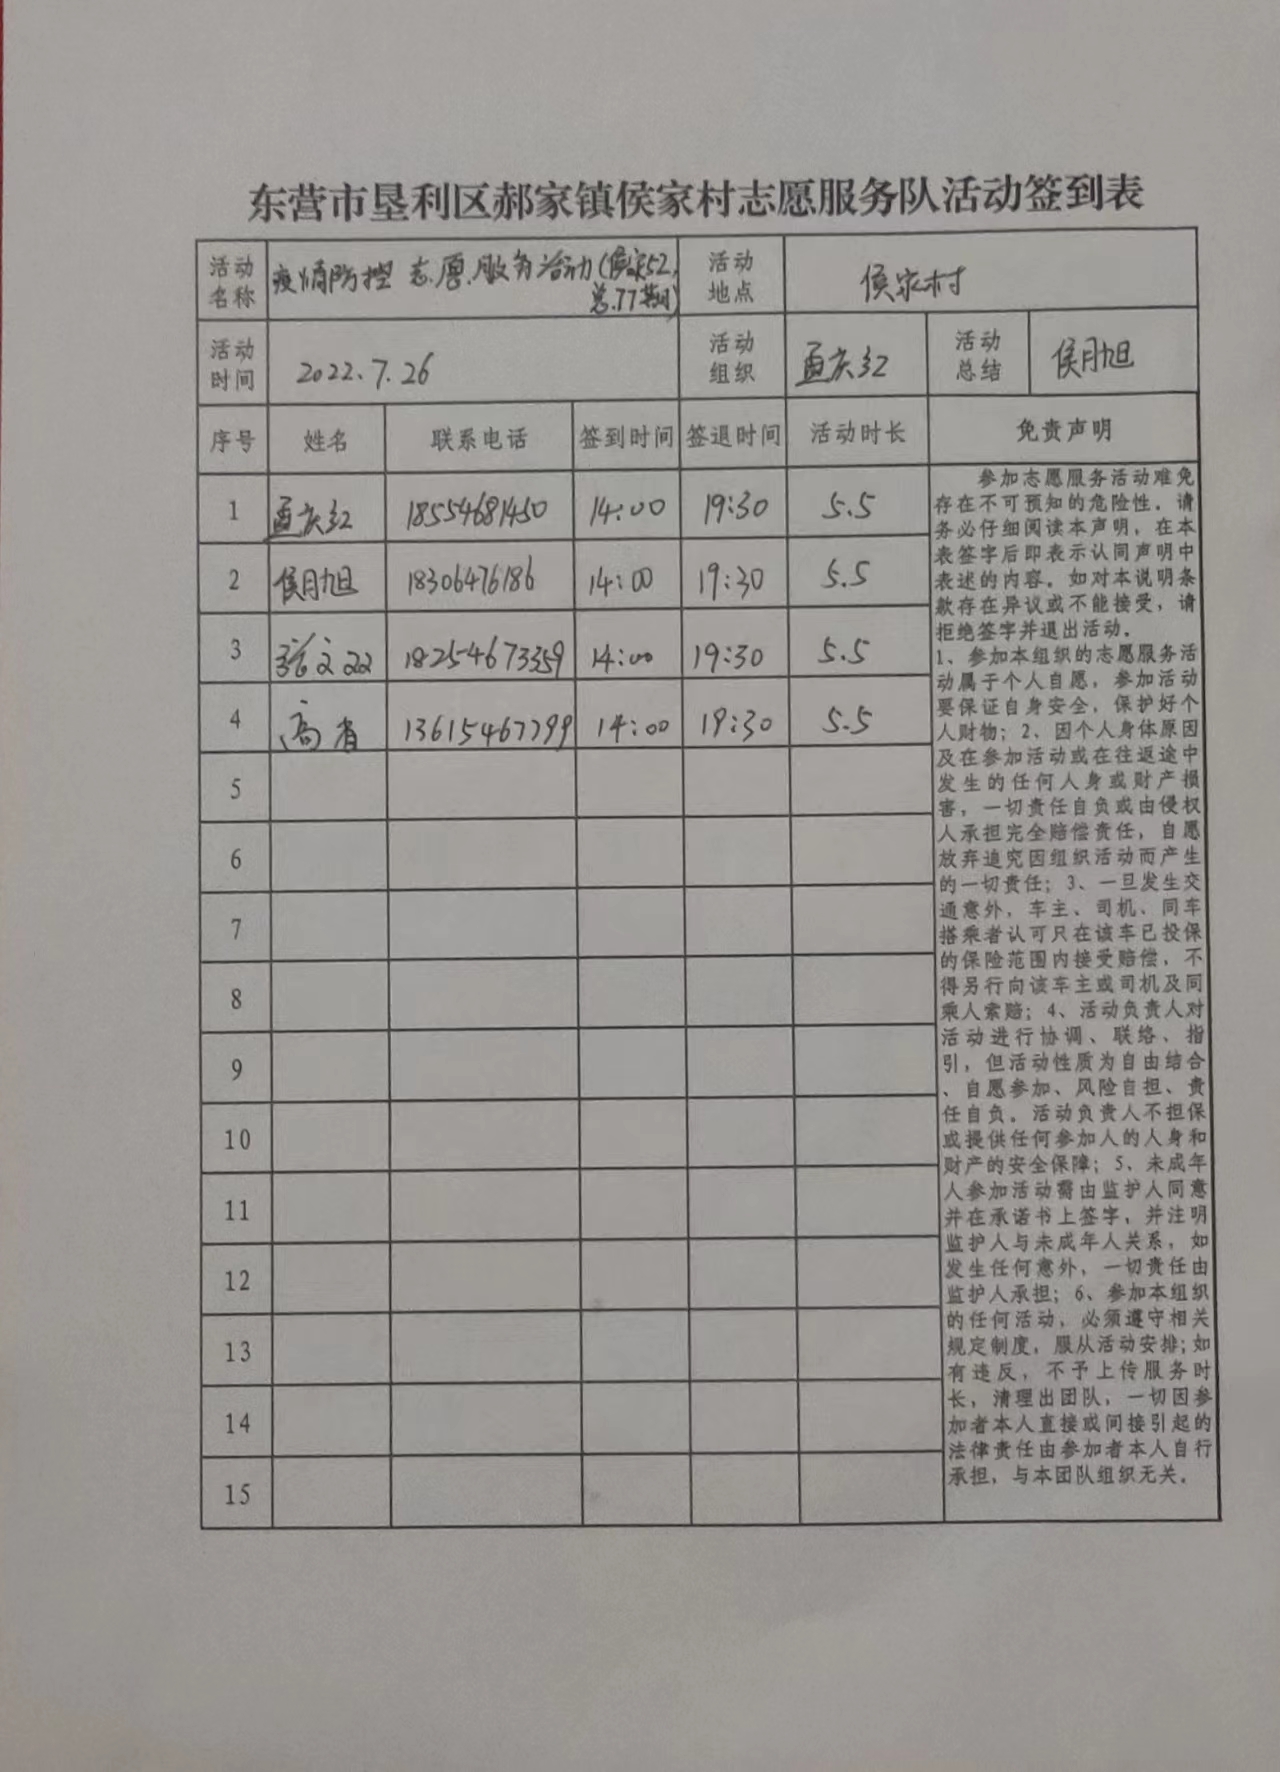 东营市垦利区郝家镇侯家村志愿服务队活动签到表
活动名称 疫情防控志愿服务活动(侯家52,总77期) 活动地点 侯家村
活动时间 2022.7.26 活动组织 孟庆红 活动总结 侯月旭
序号 姓名 联系电话 签到时间 签退时间 活动时长 免责声明
1 孟庆红 18554681450 14:00 19:30 5.5
2 侯月旭 18306476186 14:00 19:30 5.5
3 张文双 18254673359 14:00 19:30 5.5
4 高省 13615467799 14:00 19:30 5.5
5
6
7
8
9
10
11
12
13
14
15
参加志愿服务活动难免
存在不可预知的危险性,请
务必仔细阅读本声明,在本
表签字后即表示认同声明中
表述的内容。如对本说明条
款存在异议或不能接受,请
拒绝签字并退出活动。
1、参加本组织的志愿服务活
动属于个人自愿,参加活动
要保证自身安全,保护好个
人财物;2、因个人身体原因
及在参加活动或在往返途中
发生的任何人身或财产损
害,一切责任自负或由侵权
人承担完全赔偿责任,自愿
放弃追究因组织活动而产生
的一切责任;3、一旦发生交
通意外,车主、司机、同车
搭乘者认可只在该车已投保
的保险范围内接受赔偿,不
得另行向该车主或司机及同
乘人索赔;4、活动负责人对
活动进行协调、联络、指
引,但活动性质为自由结合
、自愿参加、风险自担、责
任自负。活动负责人不担保
或提供任何参加人的人身和
财产的安全保障;5、未成年
人参加活动需由监护人同意
并在承诺书上签字,并注明
监护人与未成年人关系,如
发生任何意外,一切责任由
监护人承担;6、参加本组织
的任何活动,必须遵守相关
规定制度,服从活动安排;如
有违反,不予上传服务时
长,清理出团队,一切因参
加者本人直接或间接引起的
法律责任由参加者本人自行
承担,与本团队组织无关。